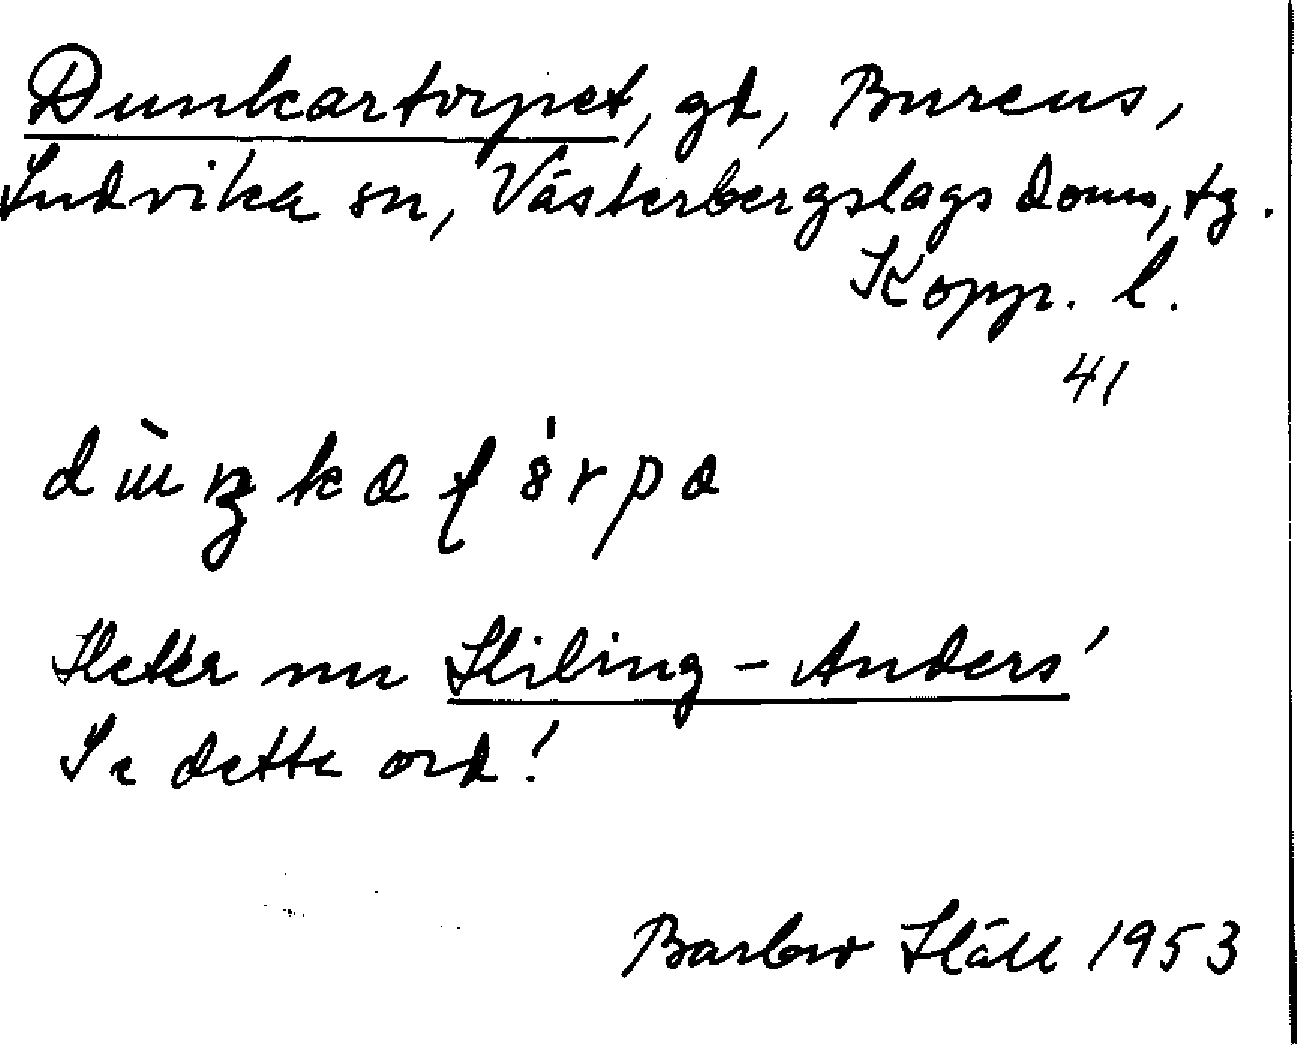 Dunkartorpet, gd, Bureus,
Ludvika sn, Västerbergslags doms, tg.
Kopp. l.
41
Heter nu Hibing-Anders'
Se detta ord!
Barbro Häll 1953